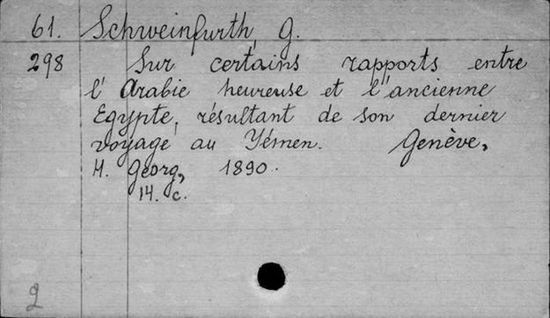 61. Schweinfurth, G.
298 Sur certains rapports entre
l'Arabie heureuse et l'ancienne
Egypte, résultant de son dernier
voyage au Yémen. Genève,
H. Georg, 1890.
14. c.
2